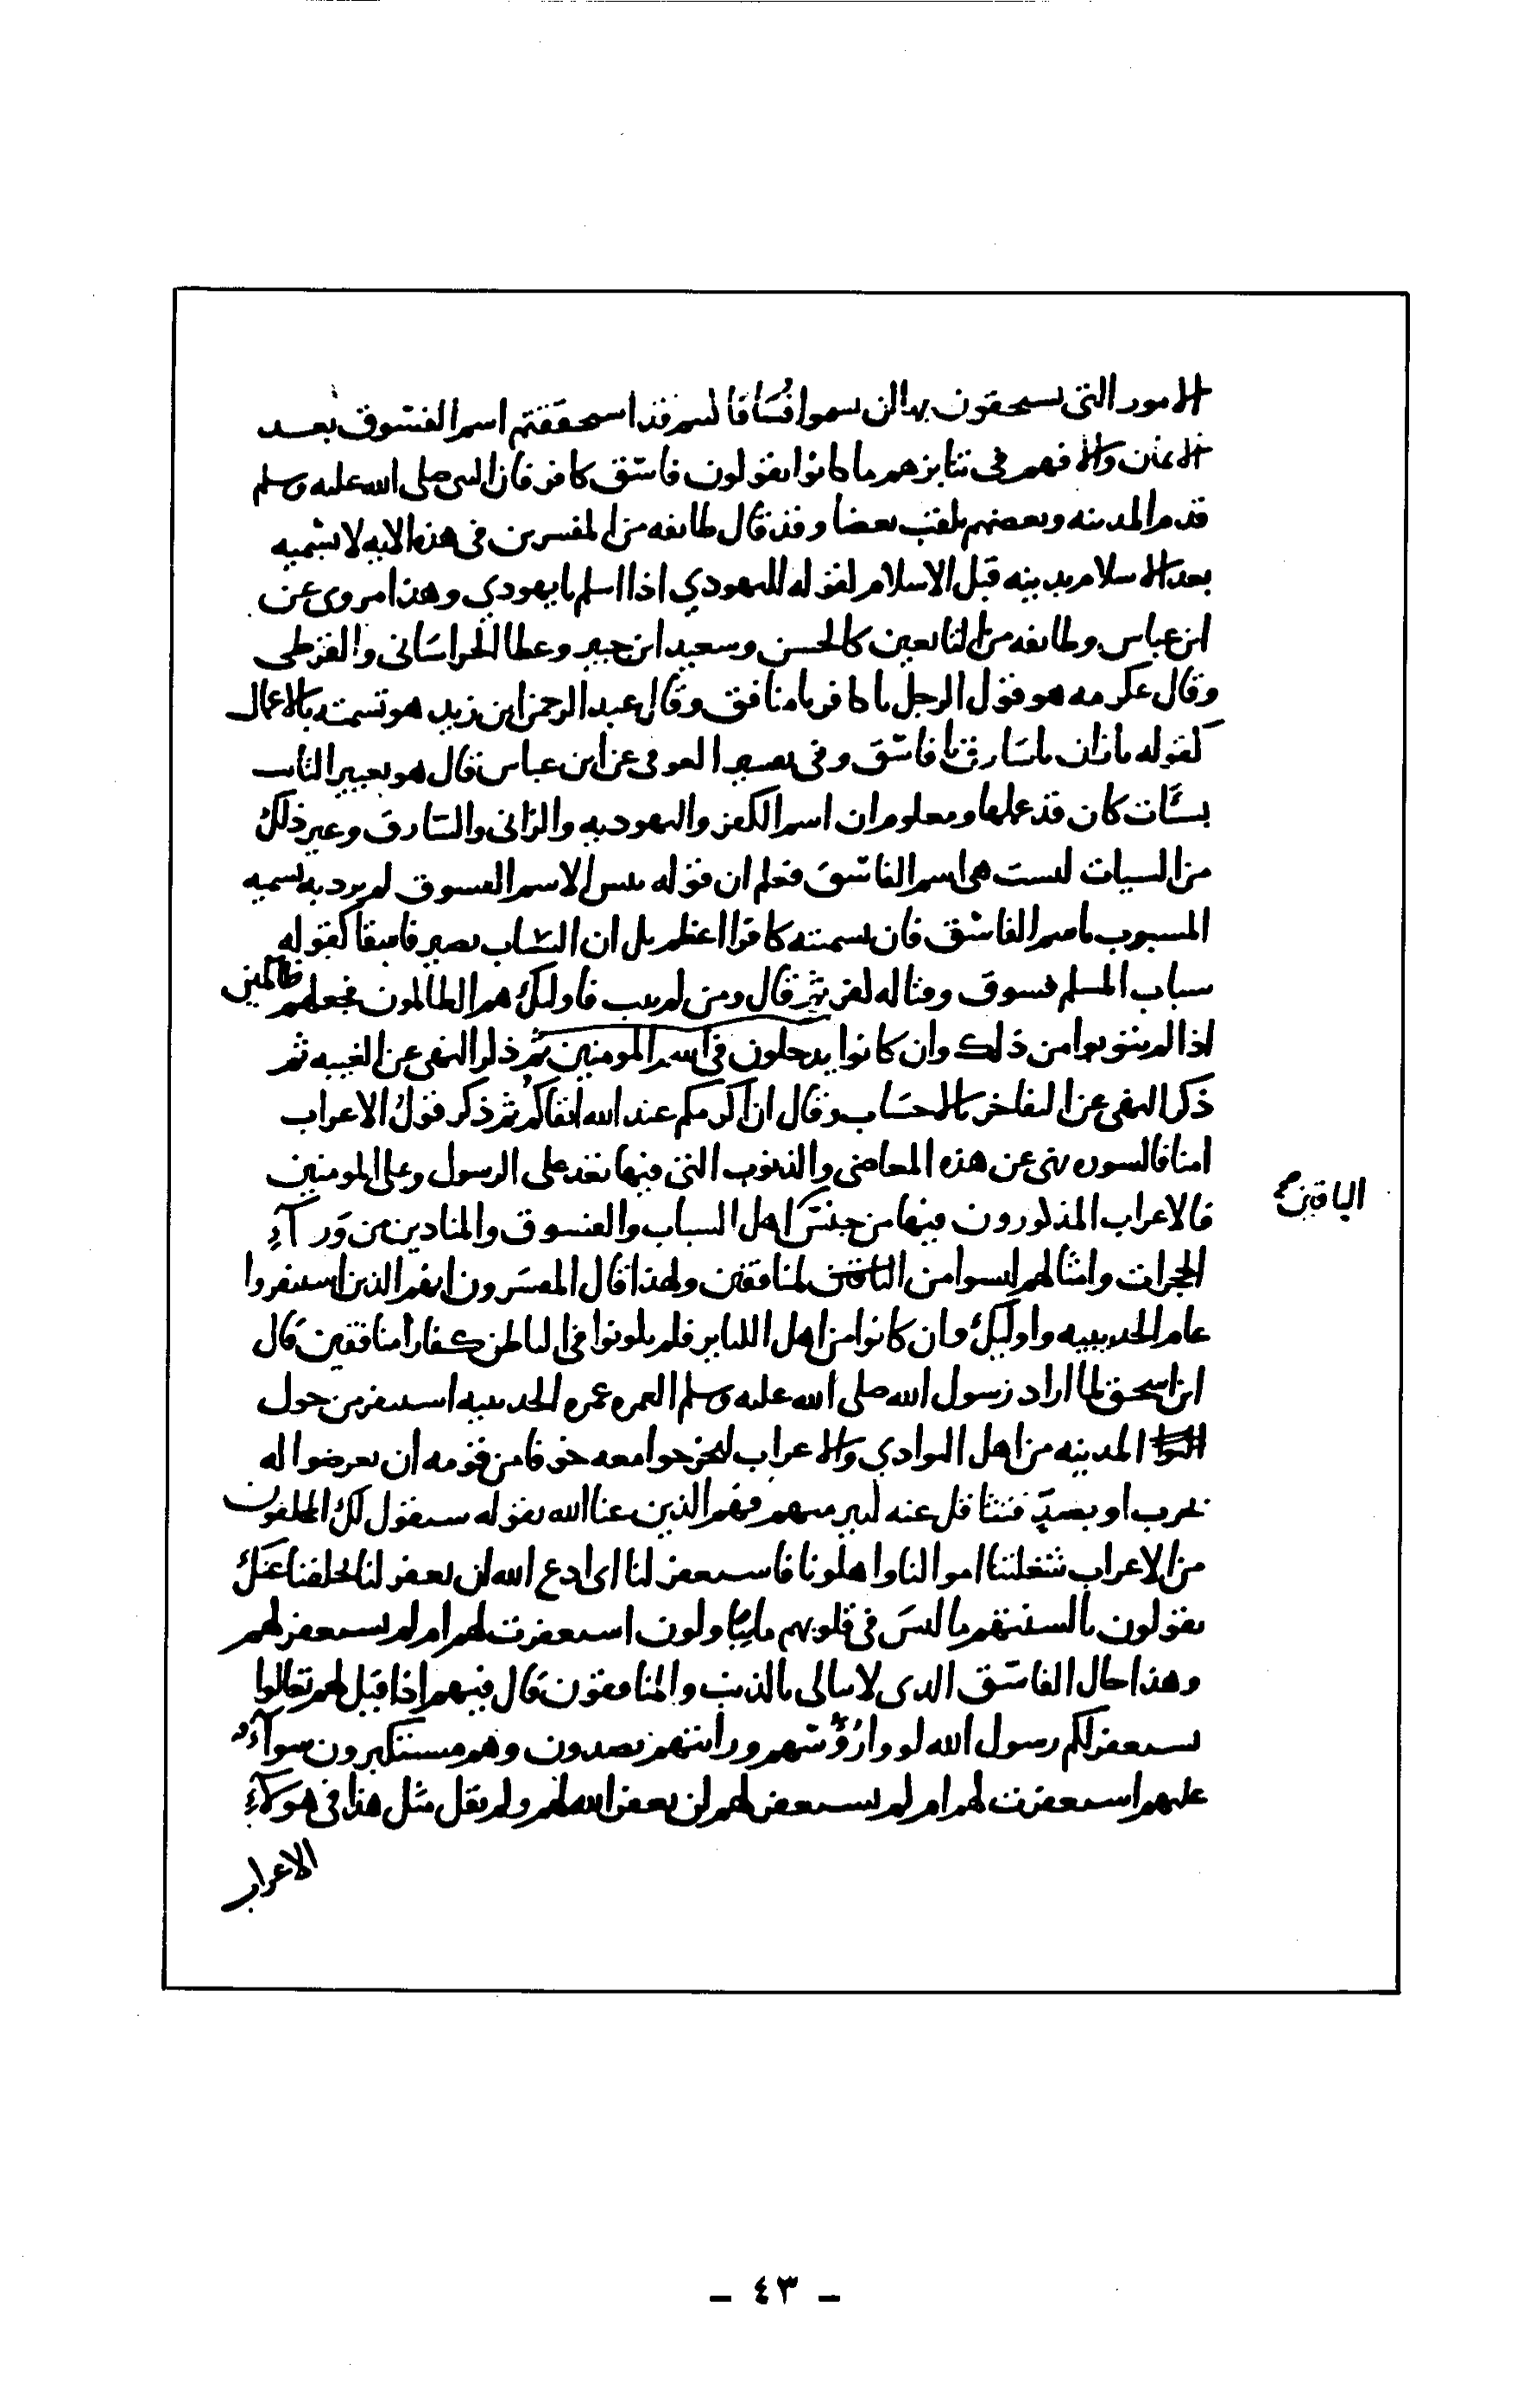 الامور التي تستحقون بها ان تسموا فُسّاقا لسم فقد استحققتم اسم الفسوق بعد
الايمان والا فهم في تنابزهم ما كانوا يقولون فاسق كافر فان النبي صلى الله عليه وسلم
قدم المدينه وبعضهم يلقب بعضا وقد قال طايفه من المفسرين في هذه الايه لا تسميه
بعد الاسلام بدينه قبل الاسلام لقوله لليهودي اذا اسلم يا يهودي وهذا مروي عن
ابن عباس وطايفه من التابعين كالحسن وسعيد ابن جبير وعطا الخراساني والقرظي
وقال عكرمه هو قول الرجل يا كافر يا منافق وقال عبد الرحمن ابن زيد هو تسميته بالاعمال
كقوله يا زان يا سارق يا فاسق وفي تفسير العوفي عن ابن عباس قال هو تعيير التائب
بسئات كان قد عملها ومعلوم ان اسم الكفر واليهوديه والزاني والسارق وغير ذلك
من السيات ليست هي اسم الفاسق فعلم ان قوله بيس الاسم الفسوق لم يرد به تسميه
المسبوب باسم الفاسق فان تسميته كافرا اعظم بل ان الساب يصير فاسقا كقوله
سباب المسلم فسوق وقتاله كفر ثم قال ومن لم يتب فاوليك هم الظالمون فجعلهم ظالمين
اذا لم يتوبوا من ذلك وان كانوا يدخلون في اسم المومنين ثم ذكر النهي عن الغيبه ثم
ذكر النهي عن التفاخر بالاحساب وقال ان اكرمكم عند الله اتقاكم ثم ذكر قول الاعراب
امنا فالسوره تنهى عن هذه المعاصي والذنوب التي فيها تعد على الرسول وعلى المومنين
فالاعراب المذكورون فيها من جنس اهل السباب والفسوق والمنادين من وراء
الباقين
الحجرات وامثالهم ليسوا من المنافقين ولهذا قال المفسرون انهم الذين استنفروا
عام الحديبيه واوليك وان كانوا من اهل الكباير فلم يكونوا في الباطن كفارا منافقين قال
ابن اسحق لما اراد رسول الله صلى الله عليه وسلم العمره عمره الحديبيه استنفر من حول
المدينه من اهل البوادي والاعراب ليخرجوا معه خوفا من قومه ان يعرضوا له
بحرب او بصد فتثاقل عنه كثير منهم فهم الذين عنا الله بقوله سيقول لك المخلفون
من الاعراب شغلتنا اموالنا واهلونا فاستغفر لنا اي ادع الله ان يغفر لنا تخلفنا عنك
يقولون بالسنتهم ما ليس في قلوبهم ما يبالون استغفرت لهم ام لم تستغفر لهم
وهذا حال الفاسق الذي لا يبالي بالذنب والمنافقون قال فيهم اذا قيل لهم تعالوا
يستغفر لكم رسول الله لووا رؤسهم ورايتهم يصدون وهم مستكبرون سواء
عليهم استغفرت لهم ام لم تستغفر لهم لن يغفر الله لهم ولم يقل مثل هذا في هولاء
الاعراب
- ٤٣ -